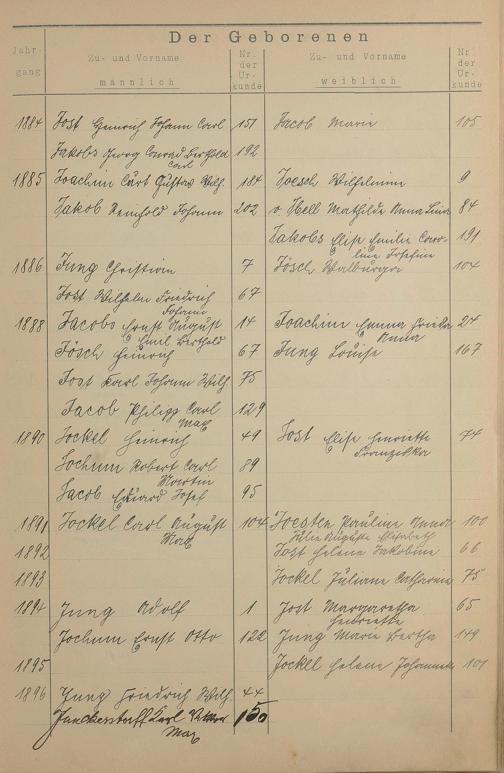 Der Geborenen
Jahr-
gang
Zu- und Vorname
männlich
Nr.
der
Ur-
kunde
Zu- und Vorname
weiblich
Nr.
der
Ur-
kunde
1884 Jost Heinrich Johann Carl 151 Jacob Marie 105
Jakobs Georg Conrad Berthold 192
Carl
1885 Joachim Curt Gustav Wilh. 184 Joesch Wilhelmine 9
Jakob Reinhold Johann 202 v. Hell Mathilde Anna Luise 84
Jakobs Elise Emilie Caro- 191
line Josefine
1886 Jung Christian 7 Jösch Walburga 104
Jost Wilhelm Friedrich 67
Johann
1888 Jacobs Ernst August 14 Joachim Emma Frieda 24
Emil Berthold Anna
Jösch Heinrich 67 Jung Louise 167
Jost Karl Johann Wilh 75
Jacob Philipp Carl 129
Max
1890 Jockel Heinrich 49 Jost Elise Henriette 74
Franziska
Jochum Robert Carl 89
Martin
Jacob Eduard Josef 95
1891 Jockel Carl August 104 Joesten Pauline Anna 100
Max Julie Auguste Elisabeth
1892 Jost Helene Jakobine 66
1893 Jockel Juliane Catharina 75
1894 Jung Adolf 1 Jost Margaretha 65
Henriette
Jochum Ernst Otto 122 Jung Marie Bertha 149
1895 Jockel Helene Johannette 101
1896 Jung Friedrich Wilh. 44
Junckerstorff Karl 150
Max